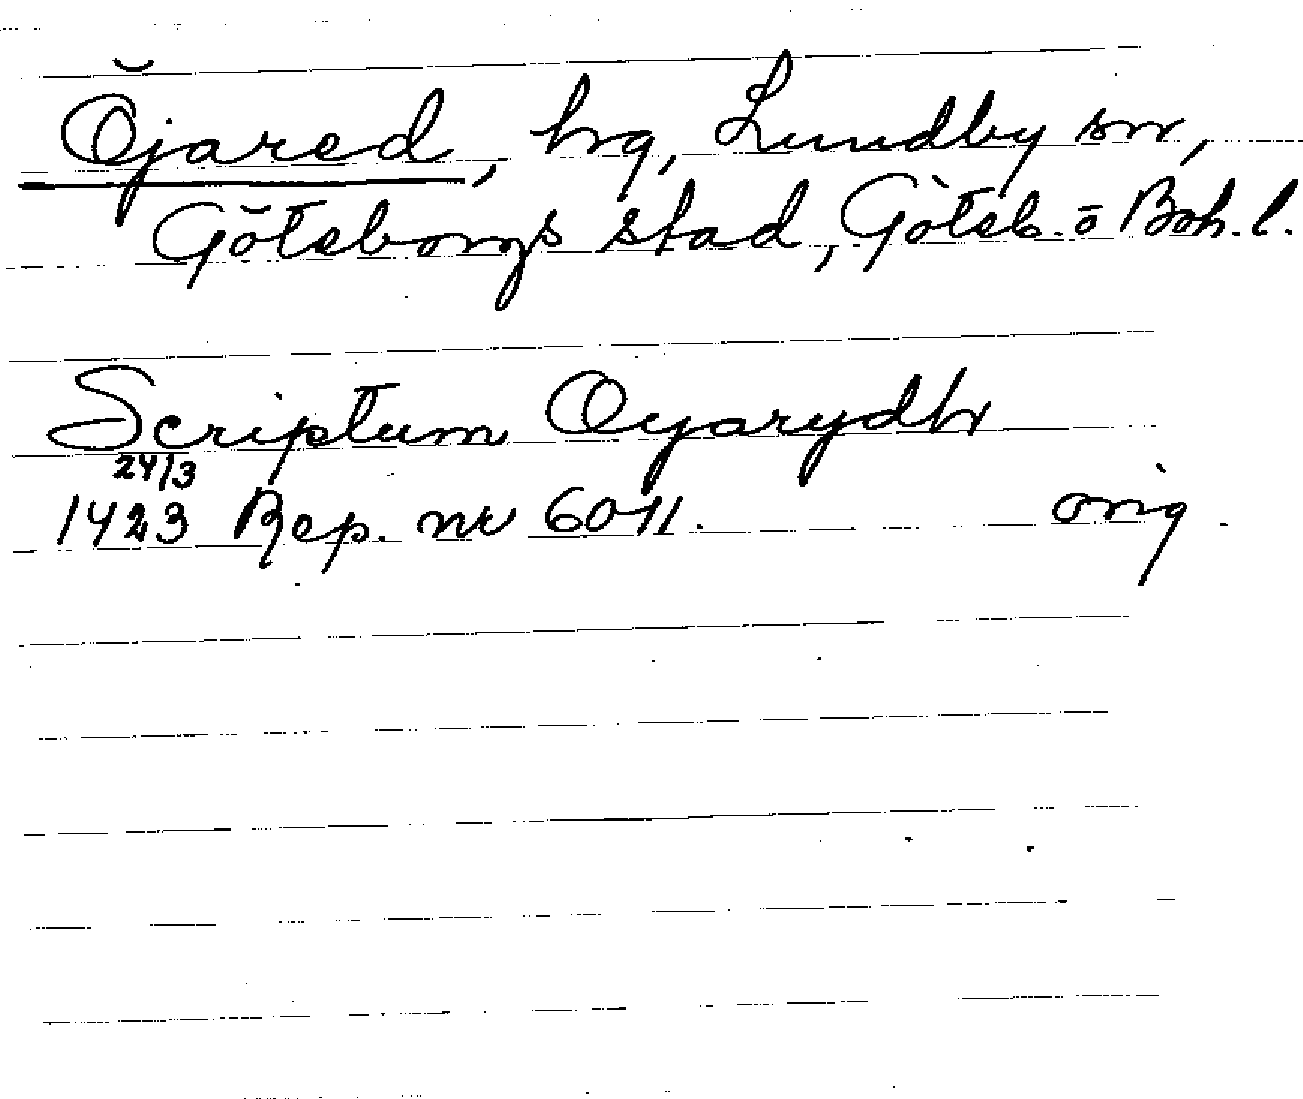 Öjared, hrg, Lundby sn,
Göteborgs stad, Göteb. o Boh. l.
Scriptum Oyarydh
24/3
1423 Rep. nr 6011. orig.